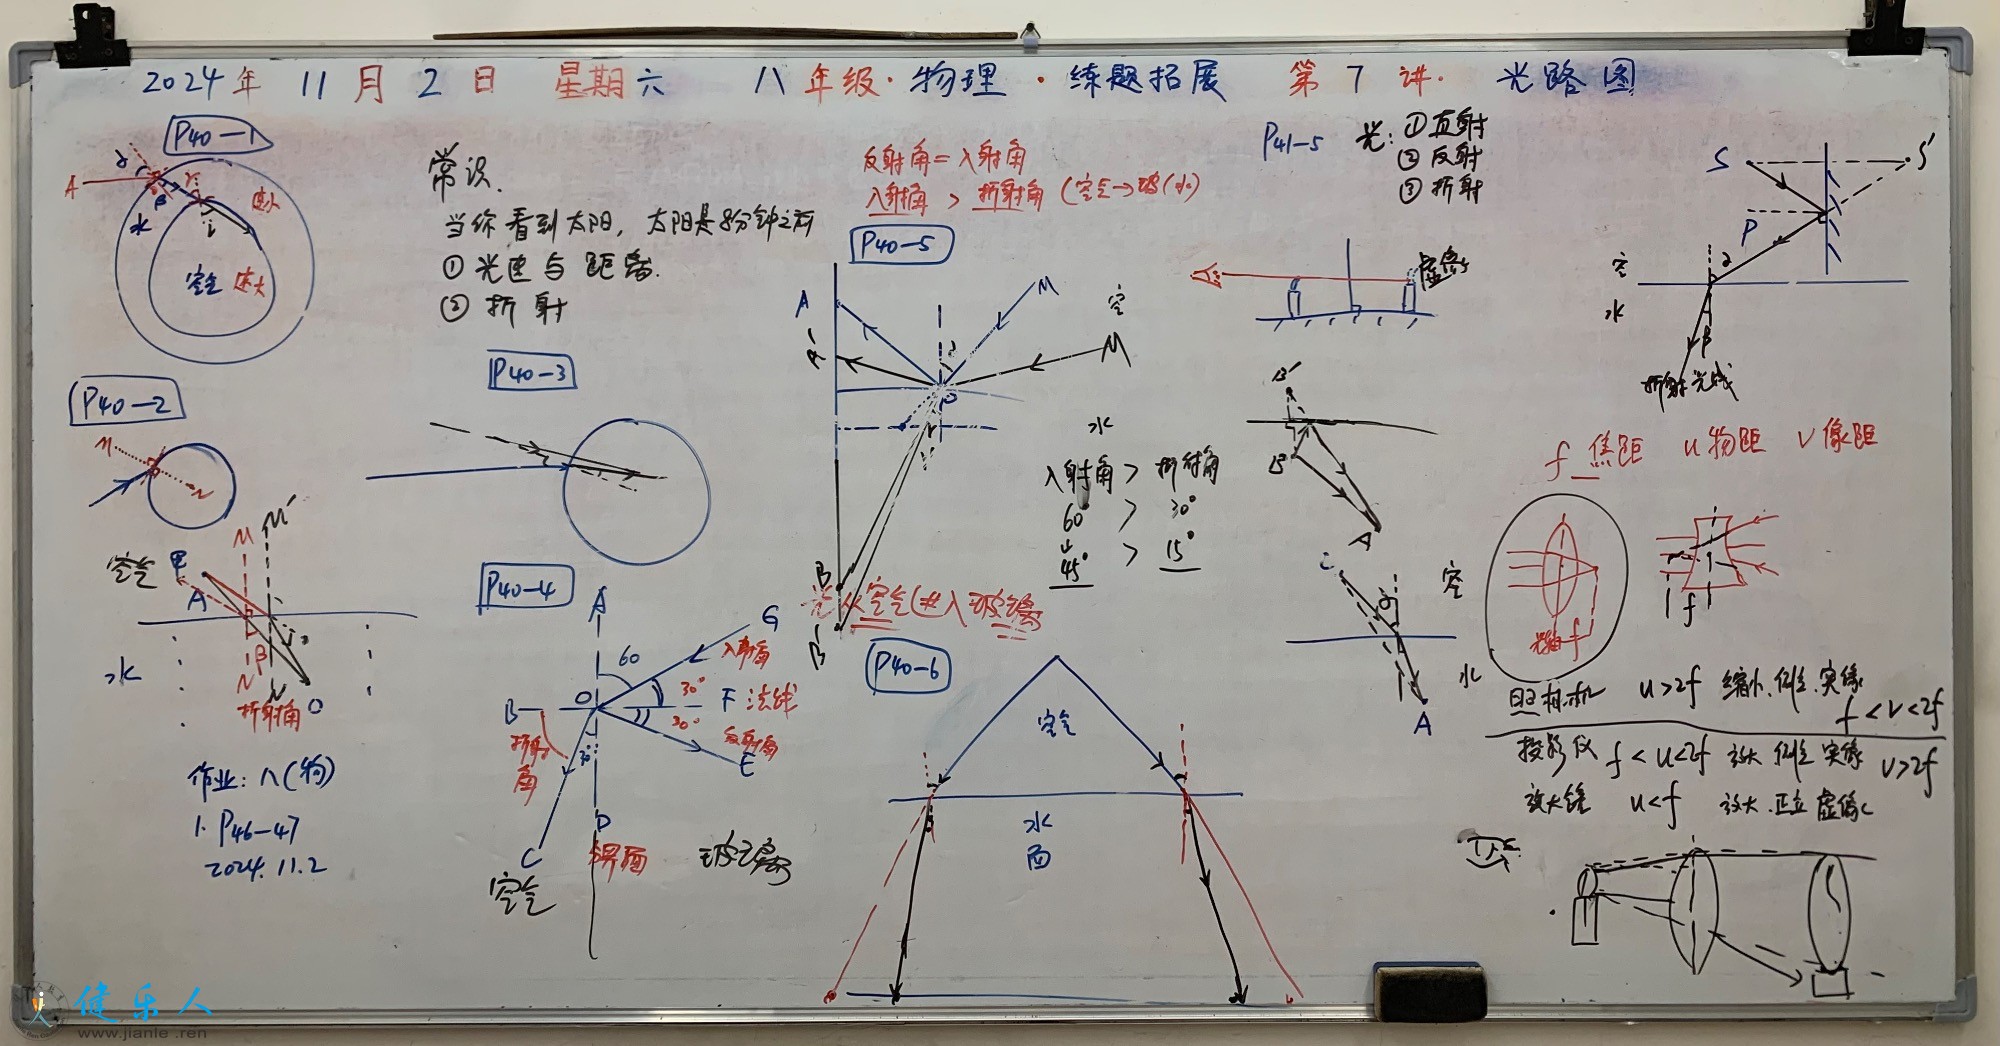 2024年 11月2日 星期六 八年级·物理·练题拓展 第7讲· 光路图
P40-1
A
α
r
β
水
i
速小
空气 速大
常识.
当你看到太阳, 太阳是8分钟之前
① 光速与距离.
② 折射
反射角=入射角
入射角 > 折射角 (空气→玻(水)
P40-5
A
A'
M
M
空
水
B
B'
入射角 > 折射角
60° > 30°
↓
45° > 15°
光从空气(进入玻璃
P41-5 光: ①直射
② 反射
③ 折射
虚像
S
S'
P
空
水
α
β
折射光线
B'
B
A
C
空
水
A
P40-2
M
N
P40-3
空气
A
M
M'
水
β
N
N'
O
折射角
作业: 八(物)
1. P46-47
2024.11.2
P40-4
A
G
60
入射角
30°
O
B
F 法线
30°
反射角
E
折射角
30°
C
D
空气
界面
玻璃
P40-6
空气
水
面
f 焦距 u 物距 v 像距
f
f
照相机 u>2f 缩小.倒立.实像
f<v<2f
投影仪 f<u<2f 放大 倒立 实像 v>2f
放大镜 u<f 放大.正立 虚像
健乐人
www.jianle.ren